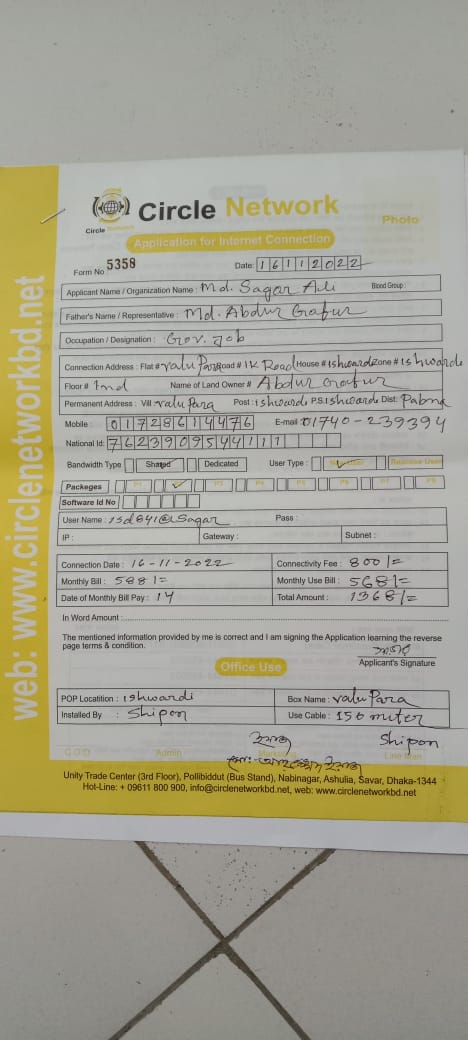 Circle Network
Circle Network
Photo
Application for Internet Connection
Form No 5358 Date: 16112022
Applicant Name / Organization Name : Md. Sagar Ali Blood Group :
Father's Name / Representative : Md. Abdur Gafur
Occupation / Designation : Gov. Job
Connection Address : Flat# ValuPara Road# IK Road House# Ishwardi Zone# Ishwardi
Floor # Name of Land Owner # Abdur Gafur
Permanent Address : Vill ValuPara Post : Ishwardi P.S Ishwardi Dist: Pabna
Mobile : 01728614476 E-mail : 01740-239394
National Id: 7623909544111
Bandwidth Type Shared Dedicated User Type : New User
Packeges P1 P3 P4 P5 P6 P7 P8
Software Id No
User Name : isd641@Sagar Pass :
IP : Gateway : Subnet :
Connection Date : 16-11-2022 Connectivity Fee : 800/=
Monthly Bill : Monthly Use Bill : 568/=
Date of Monthly Bill Pay : 14 Total Amount : 1368/=
In Word Amount :
The mentioned information provided by me is correct and I am signing the Application learning the reverse
page terms & condition.
Applicant's Signature
Office Use
POP Locatition : Ishwardi Box Name : ValuPara
Installed By : Shipon Use Cable : 150 miter
Shipon
C.O.O Admin Marketing Line Man
Unity Trade Center (3rd Floor), Pollibiddut (Bus Stand), Nabinagar, Ashulia, Savar, Dhaka-1344
Hot-Line: + 09611 800 900, info@circlenetworkbd.net, web: www.circlenetworkbd.net
web: www.circlenetworkbd.net